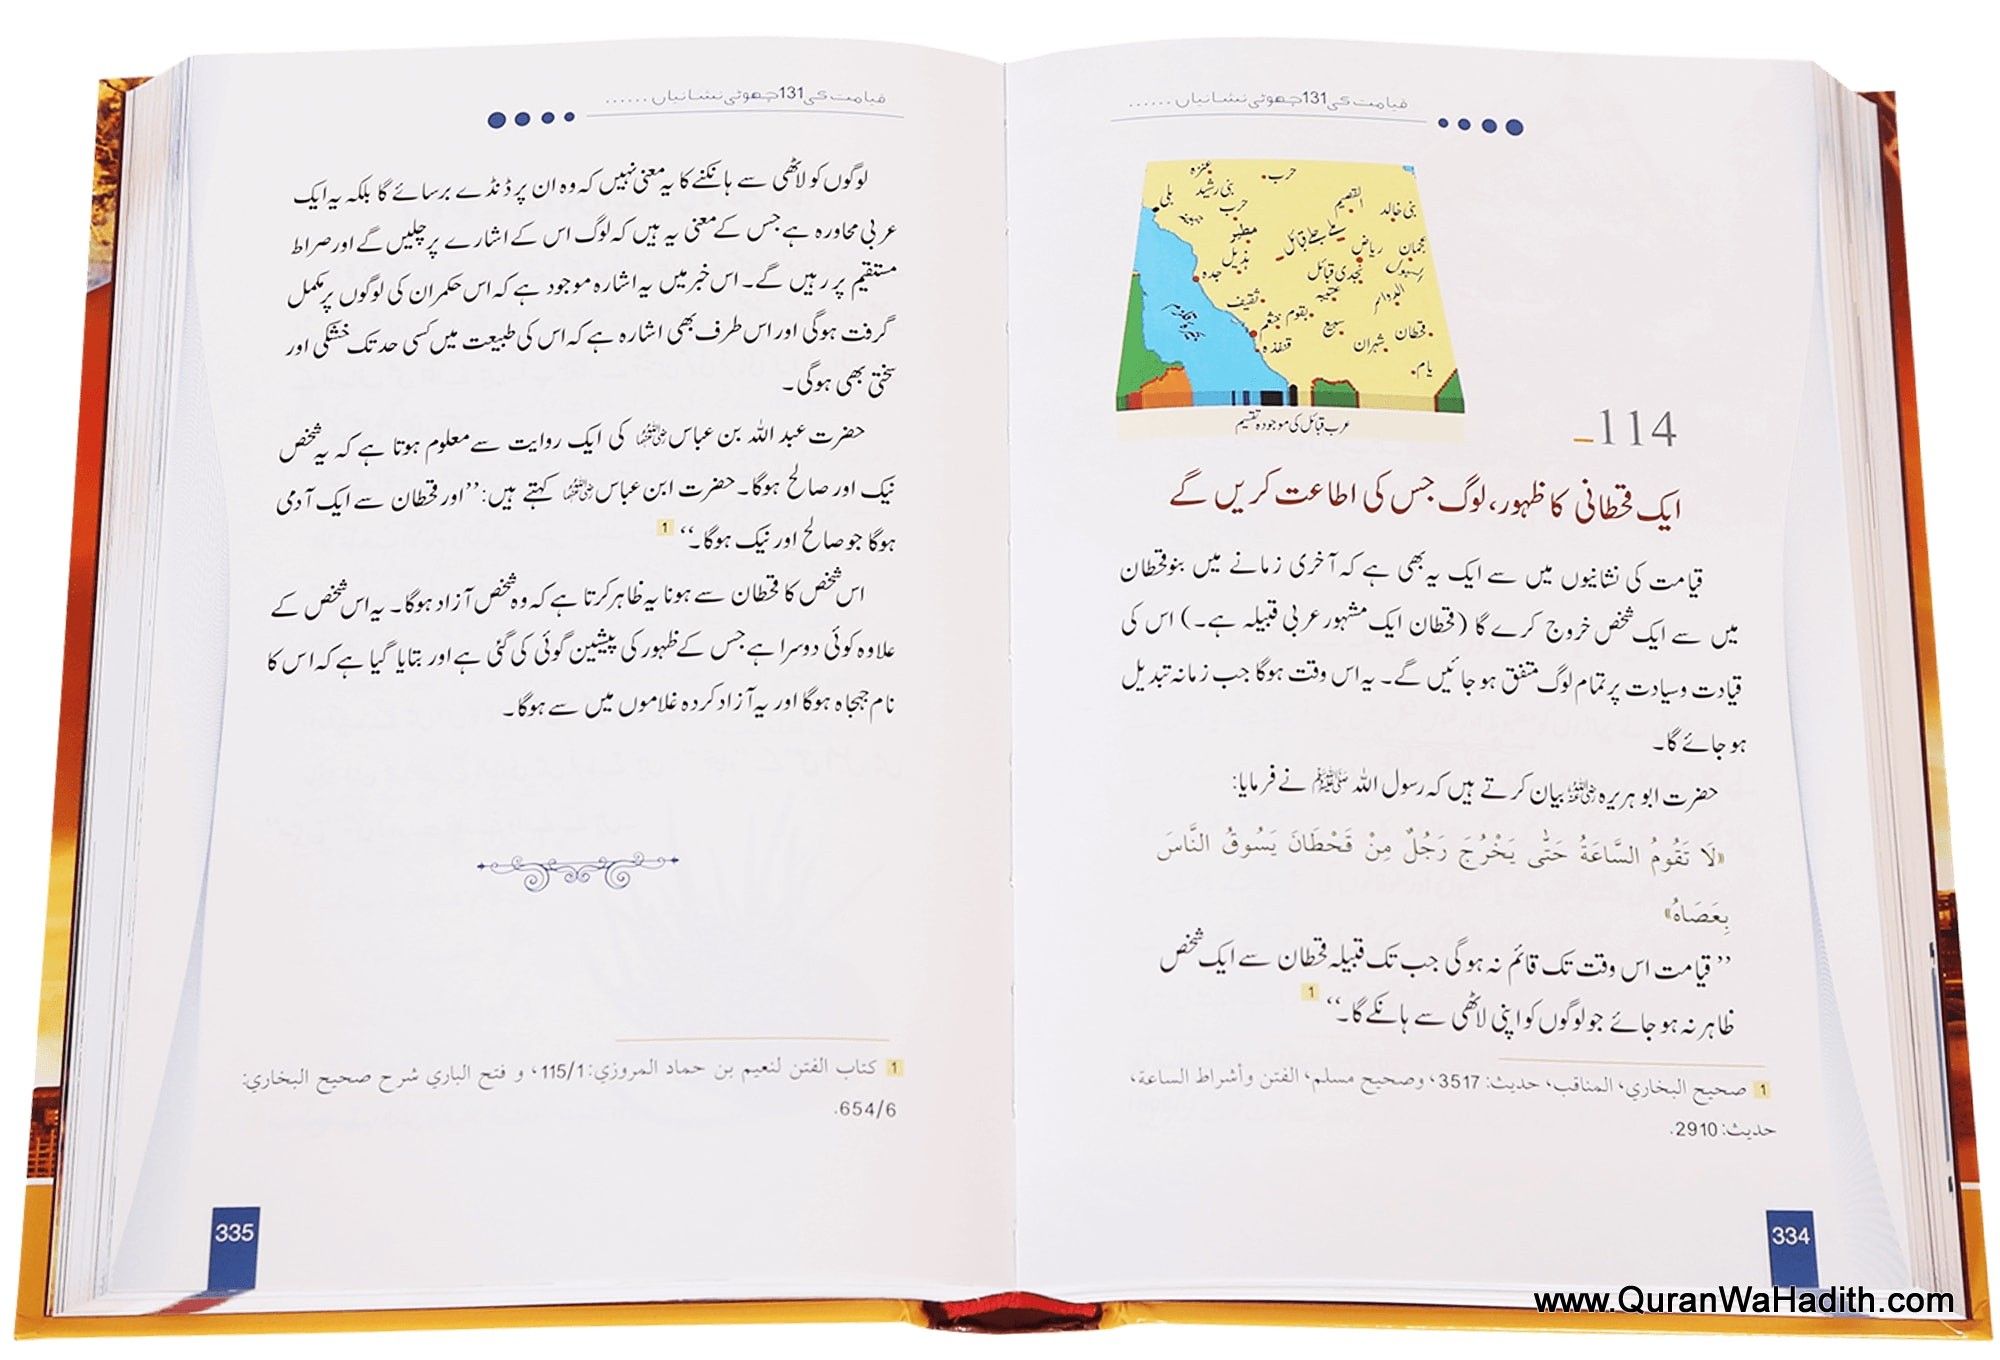 قیامت کی 131 چھوٹی نشانیاں ......
عنزہ
حرب
بنی رشید
القصیم
بنی خالد
بلی
حرب
مطیر
ملے جلے قبائل
ریاض
عجمان
ہذیل
جدہ
نجدی قبائل
الدواسر
ثقیف
عتیبہ
بقوم
خثعم
سبیع
قحطان
شہران
قنفذہ
یام
بحیرۂ قلزم
عرب قبائل کی موجودہ تقسیم
114_
ایک قحطانی کا ظہور، لوگ جس کی اطاعت کریں گے
قیامت کی نشانیوں میں سے ایک یہ بھی ہے کہ آخری زمانے میں بنوقحطان
میں سے ایک شخص خروج کرے گا (قحطان ایک مشہور عربی قبیلہ ہے۔) اس کی
قیادت وسیادت پر تمام لوگ متفق ہو جائیں گے۔ یہ اس وقت ہوگا جب زمانہ تبدیل
ہو جائے گا۔
حضرت ابو ہریرہ رضی اللہ عنہ بیان کرتے ہیں کہ رسول اللہ ﷺ نے فرمایا:
«لَا تَقُومُ السَّاعَةُ حَتَّى يَخْرُجَ رَجُلٌ مِنْ قَحْطَانَ يَسُوقُ النَّاسَ
بِعَصَاهُ»
’’قیامت اس وقت تک قائم نہ ہوگی جب تک قبیلہ قحطان سے ایک شخص
ظاہر نہ ہو جائے جو لوگوں کو اپنی لاٹھی سے ہانکے گا۔‘‘ 1
1 صحيح البخاري، المناقب، حديث: 3517، وصحيح مسلم، الفتن وأشراط الساعة،
حديث: 2910.
334
قیامت کی 131 چھوٹی نشانیاں ......
لوگوں کو لاٹھی سے ہانکنے کا یہ معنی نہیں کہ وہ ان پر ڈنڈے برسائے گا بلکہ یہ ایک
عربی محاورہ ہے جس کے معنی یہ ہیں کہ لوگ اس کے اشارے پر چلیں گے اور صراط
مستقیم پر رہیں گے۔ اس خبر میں یہ اشارہ موجود ہے کہ اس حکمران کی لوگوں پر مکمل
گرفت ہوگی اور اس طرف بھی اشارہ ہے کہ اس کی طبیعت میں کسی حد تک خشکی اور
سختی بھی ہوگی۔
حضرت عبد اللہ بن عباس رضی اللہ عنہما کی ایک روایت سے معلوم ہوتا ہے کہ یہ شخص
نیک اور صالح ہوگا۔ حضرت ابن عباس رضی اللہ عنہما کہتے ہیں: ’’اور قحطان سے ایک آدمی
ہوگا جو صالح اور نیک ہوگا۔‘‘ 1
اس شخص کا قحطان سے ہونا یہ ظاہر کرتا ہے کہ وہ شخص آزاد ہوگا۔ یہ اس شخص کے
علاوہ کوئی دوسرا ہے جس کے ظہور کی پیشین گوئی کی گئی ہے اور بتایا گیا ہے کہ اس کا
نام جہجاہ ہوگا اور یہ آزاد کردہ غلاموں میں سے ہوگا۔
1 كتاب الفتن لنعيم بن حماد المروزي: 115/1، و فتح الباري شرح صحيح البخاري:
654/6.
335
www.QuranWaHadith.com